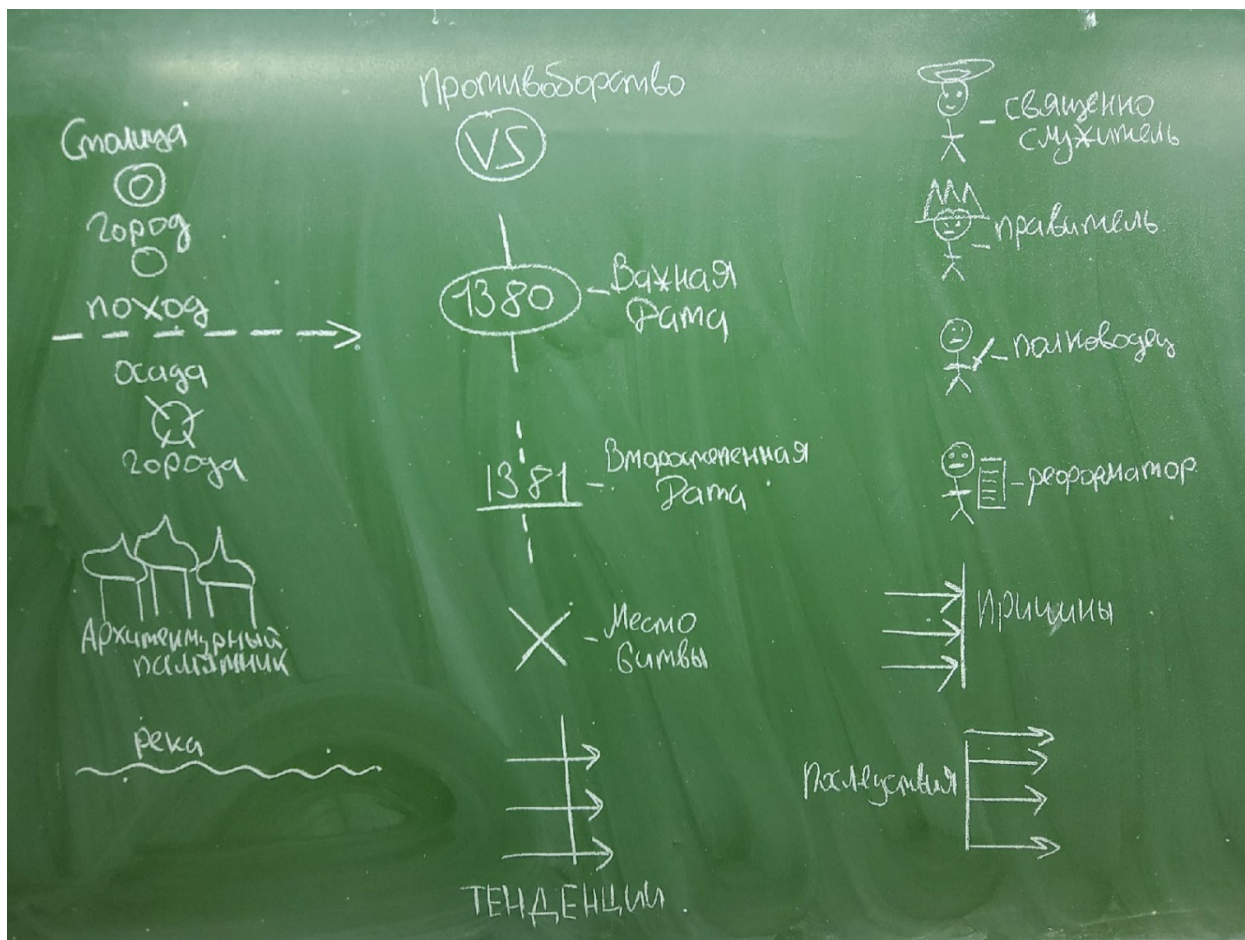 Столица
город
поход
Осада
города
Архитектурный
памятник
река
Противоборство
VS
1380
- Важная
Дата
1381
- Второстепенная
Дата
- Место
битвы
ТЕНДЕНЦИИ
- священно
служитель
- правитель
- полководец
- реформатор
Причины
Последствия